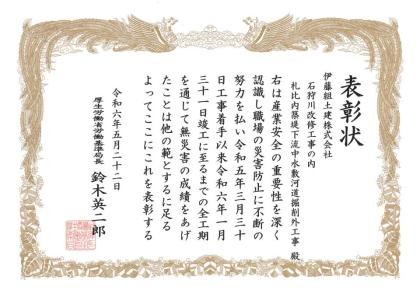 表彰状
伊藤組土建株式会社
石狩川改修工事の内
札比内築堤下流中水敷河道掘削外工事 殿
右は産業安全の重要性を深く
認識し職場の災害防止に不断の
努力を払い令和五年三月三十
日工事着手以来令和六年一月
三十一日竣工に至るまでの全工期
を通じて無災害の成績をあげ
たことは他の範とするに足る
よってここにこれを表彰する
令和六年五月二十二日
厚生労働省労働基準局長 鈴木英二郎